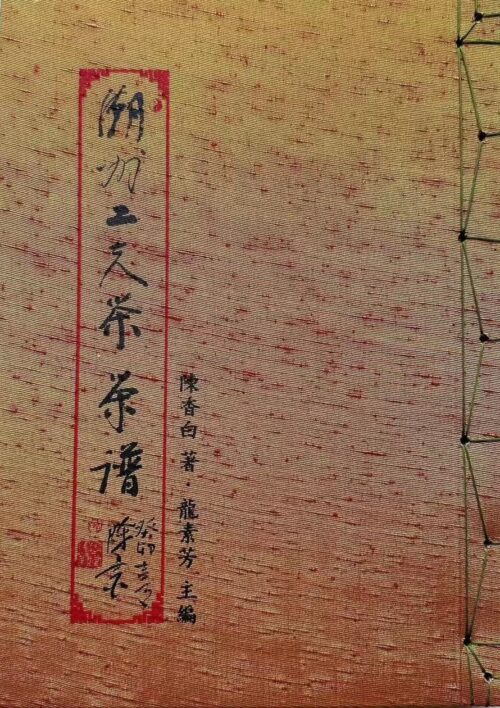 潮州工夫茶茶谱
癸卯
陈香白著·龍素芳主編